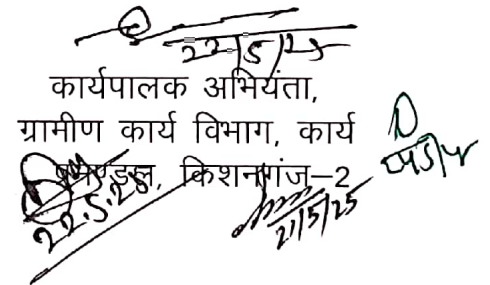 22/5/25
कार्यपालक अभियंता,
ग्रामीण कार्य विभाग, कार्य
प्रमण्डल, किशनगंज–2
22.5.25
21/5/25